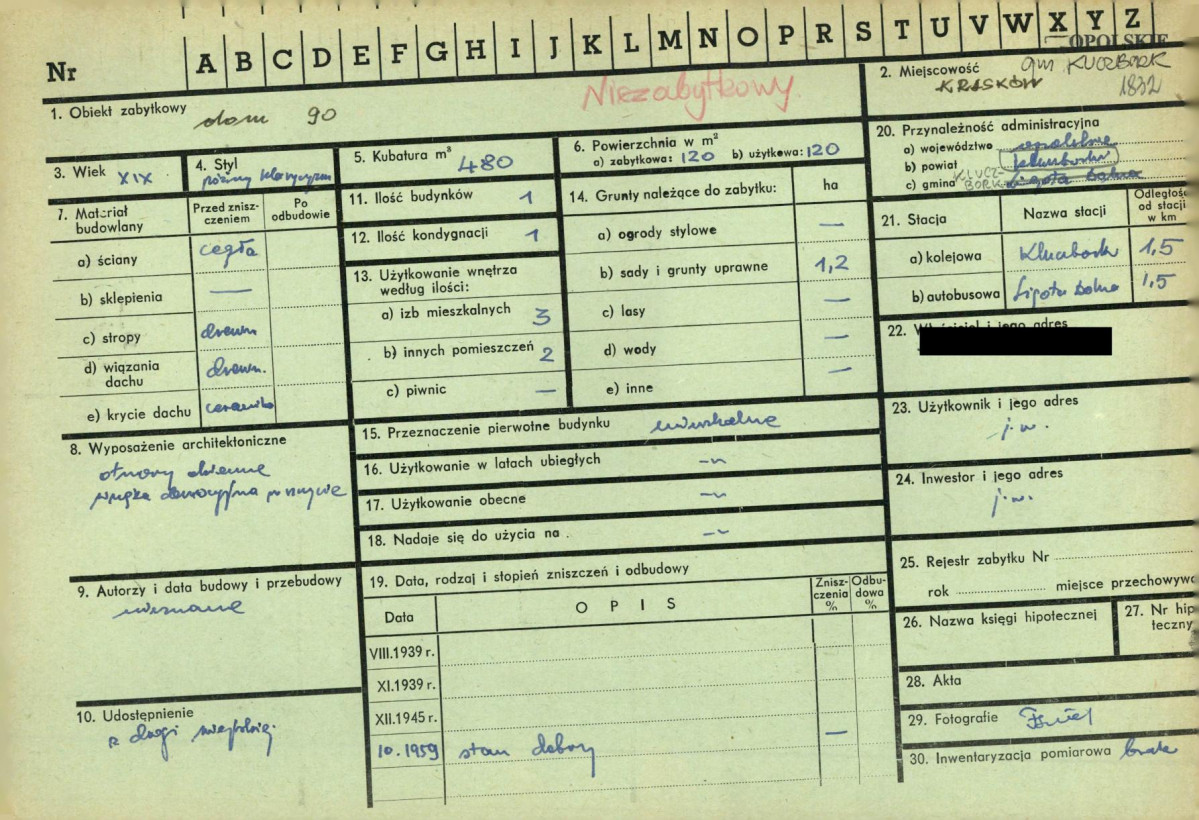 Nr A B C D E F G H I J K L M N O P R S T U V W X Y Z
OPOLSKIE
1. Obiekt zabytkowy dom 90
Niezabytkowy
2. Miejscowość gm KUCZBORK
KRASKÓW 1832
3. Wiek XIX
4. Styl
późny klasycyzm
5. Kubatura m³ 480
6. Powierzchnia w m²
a) zabytkowa: 120 b) użytkowa: 120
20. Przynależność administracyjna
a) województwo opolskie
b) powiat kluczborski
c) gmina KLUCZ-
BORK Ligota Dolna
7. Materiał
budowlany
Przed znisz-
czeniem
Po
odbudowie
a) ściany cegła
b) sklepienia —
c) stropy drewn.
d) wiązania
dachu drewn.
e) krycie dachu ceramika
11. Ilość budynków 1
12. Ilość kondygnacji 1
13. Użytkowanie wnętrza
według ilości:
a) izb mieszkalnych 3
b) innych pomieszczeń 2
c) piwnic —
14. Grunty należące do zabytku: ha
a) ogrody stylowe —
b) sady i grunty uprawne 1,2
c) lasy —
d) wody —
e) inne —
21. Stacja Nazwa stacji
Odległość
od stacji
w km
a) kolejowa Kluczbork 1,5
b) autobusowa Ligota Dolna 1,5
22. Właściciel i jego adres
23. Użytkownik i jego adres
j.w.
24. Inwestor i jego adres
j.w.
8. Wyposażenie architektoniczne
otwory okienne
wnęka dekoracyjna w szczycie
15. Przeznaczenie pierwotne budynku mieszkalne
16. Użytkowanie w latach ubiegłych -"-
17. Użytkowanie obecne -"-
18. Nadaje się do użycia na -"-
9. Autorzy i data budowy i przebudowy
nieznane
10. Udostępnienie
z drogi wiejskiej
19. Data, rodzaj i stopień zniszczeń i odbudowy
Data OPIS
Znisz-
czenia
%
Odbu-
dowa
%
VIII.1939 r.
XI.1939 r.
XII.1945 r.
10.1959 stan dobry —
25. Rejestr zabytku Nr
rok miejsce przechowyw
26. Nazwa księgi hipotecznej
27. Nr hip
teczny
28. Akta
29. Fotografie
30. Inwentaryzacja pomiarowa brak